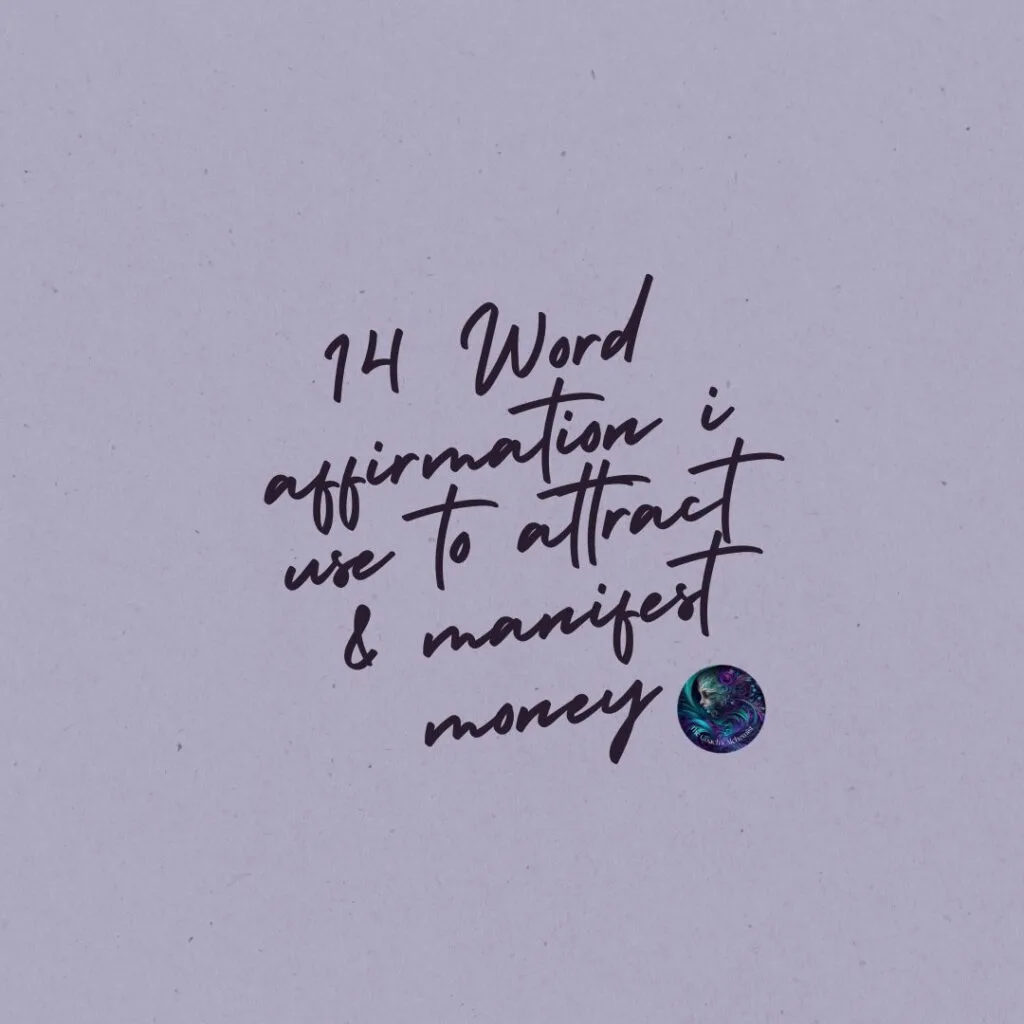 14 Word
affirmation i
use to attract
& manifest
money